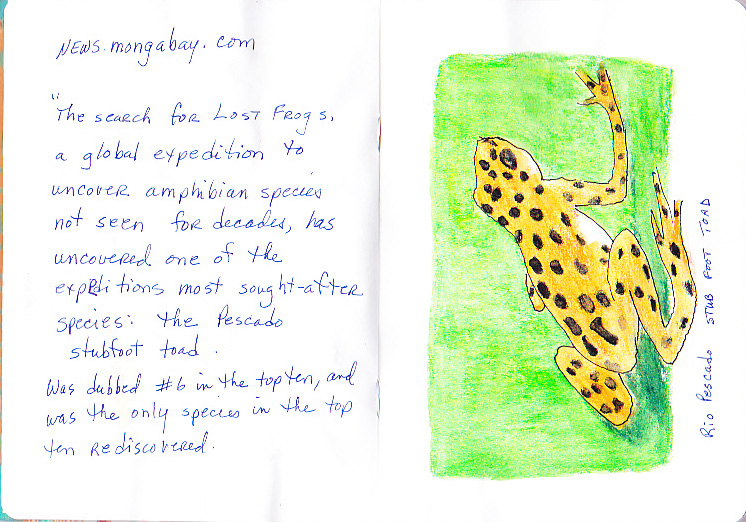 NEWS.mongabay.com
"The search for Lost Frogs,
a global expedition to
uncover amphibian species
not seen for decades, has
uncovered one of the
expeditions most sought-after
species: the Pescado
stubfoot toad.
Was dubbed #6 in the top ten, and
was the only species in the top
ten rediscovered.
Rio Pescado STUB FOOT TOAD